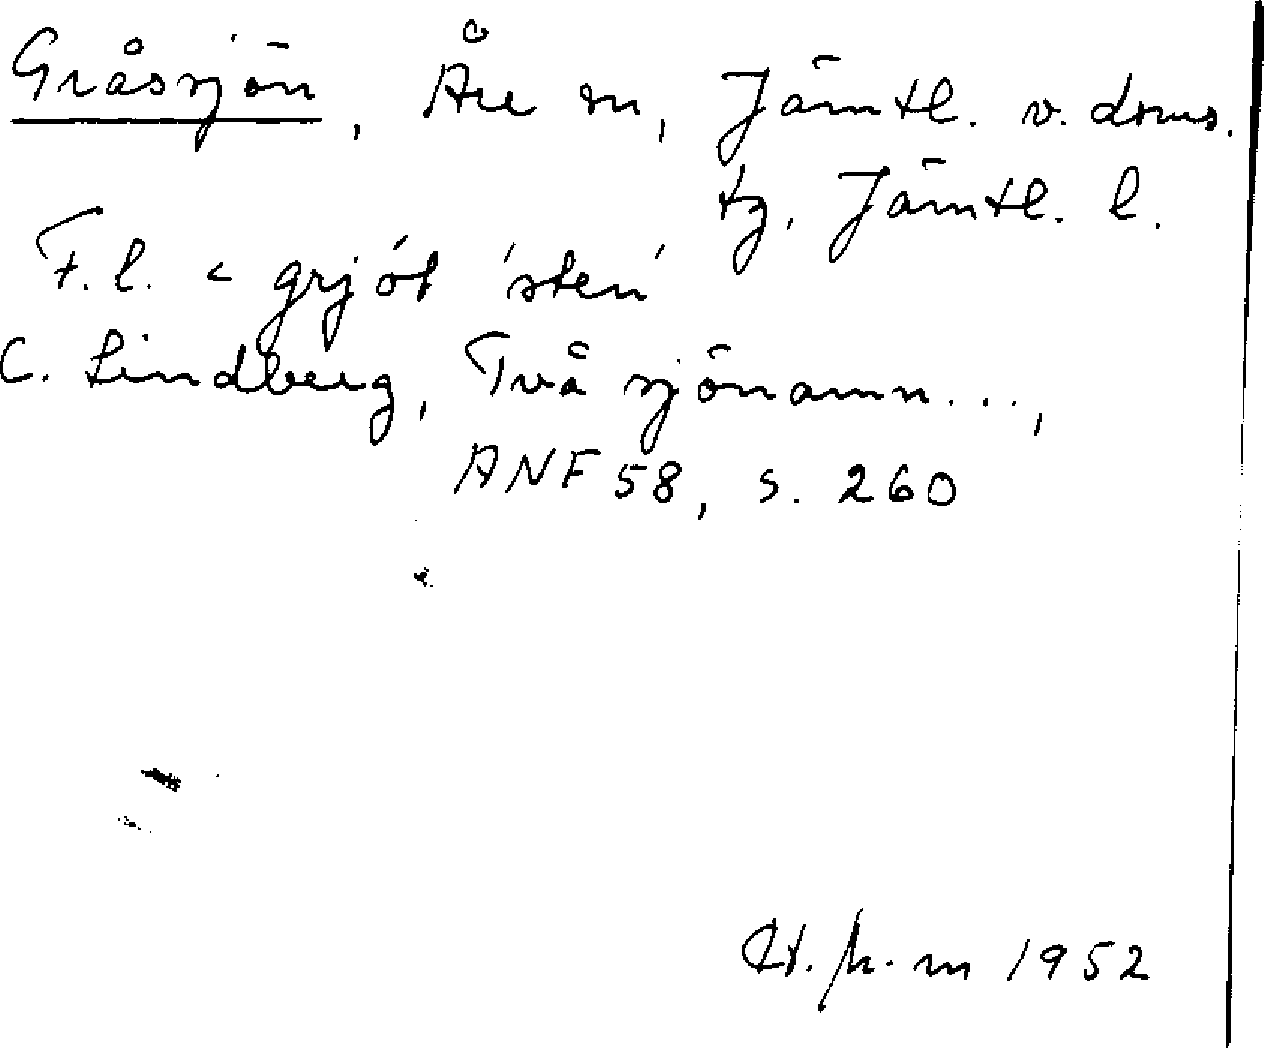 Gråsjön, Åre sn, Jämtl. v. doms.
tg, Jämtl. l.
F.l. < grjót 'sten'
C. Lindberg, Två sjönamn...,
ANF 58, s. 260
m 1952